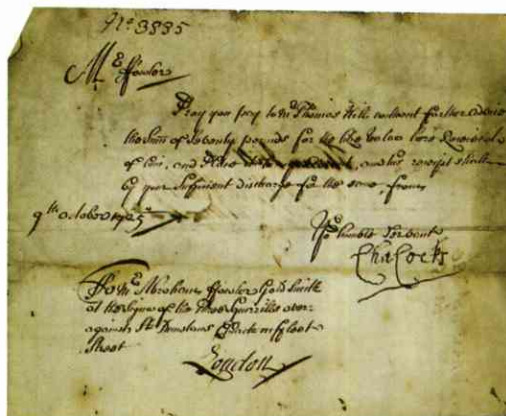 No 3885
Mr ffowler
Pray you pay to Mr Thomas Hill without further Advice
the Sum of Seventy pounds for the like value here Received
of him, and Place it to, and his receipt shall
by your Sufficient discharge for the same, from
9th October 1725
Yor humble Servant
Cha Cocks
To Mr Abraham ffowler Gold Smith
at the Signe of the Three Squirrills over
against St Dunstans Church in ffleet
Street
London